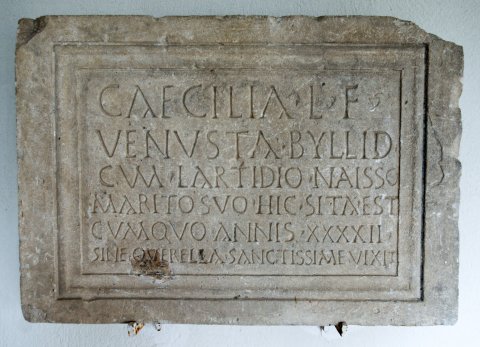 CAECILIA·L·F
VENUSTA·BYLLID
CUM·LARTIDIO·NAISSO
MARITO SVO·HIC·SITA EST
CUM QVO·ANNIS·XXXXII
SINE·QVERELLA·SANCTISSIME VIXIT